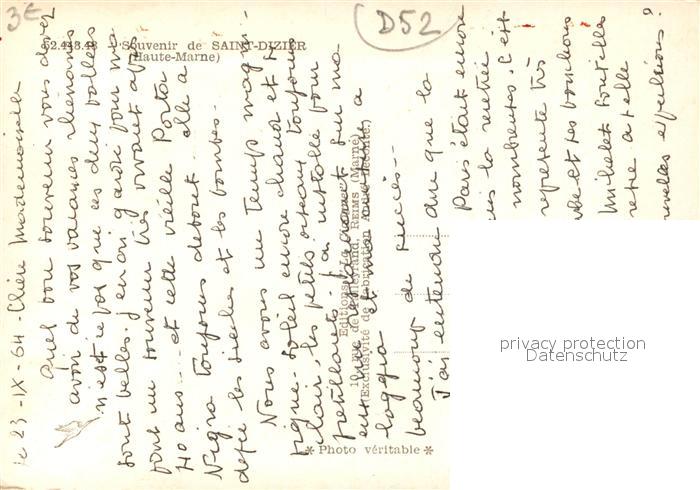 3€
D52
52.448.48 - Souvenir de SAINT-DIZIER
(Haute-Marne)
le 23-IX-64 - Chère Mademoiselle
Quel bon souvenir vous devez
avoir de vos vacances rhénanes
n'est ce pas que ces deux vallées
sont belles. j'en ai gardé pour ma
part un souvenir très vivant après
40 ans... et cette vieille Porta
Nigra toujours debout. elle a
défié les siècles et les bombes.
Nous avons un temps magni-
fique. soleil encore chaud et
clair, les petits oiseaux toujours
pétillants. installé pour
ma
loggia
beaucoup de succès...
J'ai entendu dire que la
Paris était encore
la rentrée
nombreuses. C'est
représente très
et ses bombons
Michelet
nouvelles expéditions?
Editions
REIMS (Marne)
(Exclusivité de fabrication
* Photo véritable *
privacy protection
Datenschutz